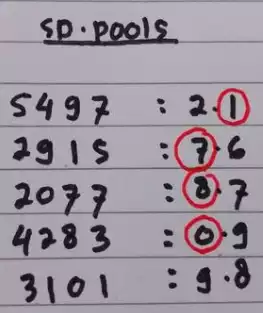 SD.POOLS
5497 : 2.1
2915 : 7.6
2077 : 8.7
4283 : 0.9
3101 : 9.8